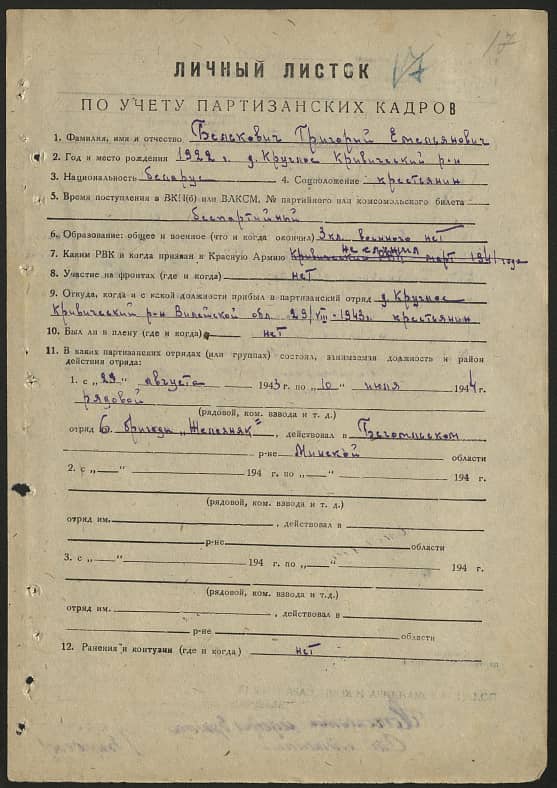 17
17
ЛИЧНЫЙ ЛИСТОК
ПО УЧЕТУ ПАРТИЗАНСКИХ КАДРОВ
1. Фамилия, имя и отчество Белькович Григорий Емельянович
2. Год и место рождения 1922 г. д. Круглое Кривический р-н
3. Национальность беларус 4. Соцположение крестьянин
5. Время поступления в ВКП(б) или ВЛКСМ, № партийного или комсомольского билета
беспартийный
6. Образование: общее и военное (что и когда окончил) 3 кл. военного нет
не служил
7. Каким РВК и когда призван в Красную Армию Кривический РВК март 1941 года
8. Участие на фронтах (где и когда) нет
9. Откуда, когда и с какой должности прибыл в партизанский отряд д. Круглое
Кривический р-н Вилейской обл. 29/VIII-1943 г. крестьянин
10. Был ли в плену (где и когда) нет
11. В каких партизанских отрядах (или группах) состоял, занимаемая должность и район
действия отряда:
1. с „29“ августа 1943 г. по „10“ июля 1944 г.
рядовой
(рядовой, ком. взвода и т. д.)
отряд 6. бригады „Железняк“, действовал в Бегомльском
р-не Минской области
2. с „—“ 194 г. по „—“ 194 г.
(рядовой, ком. взвода и т. д.)
отряд им. , действовал в
р-не области
3. с „—“ 194 г. по „—“ 194 г.
(рядовой, ком. взвода и т.д.)
отряд им. , действовал в
р-не области
12. Ранения и контузии (где и когда) нет